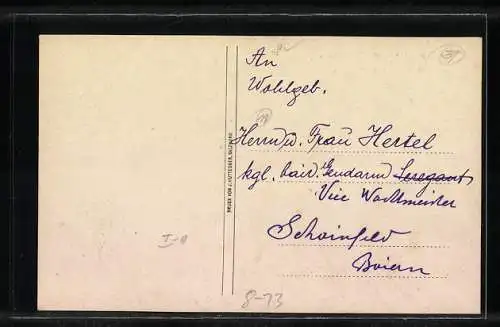 An
Wohlgeb.
Herrn u. Frau Hertel
kgl. bair. Gendarm Seregant
Vice Wachtmeister
Scheinfeld
Baiern
I-II
8-73